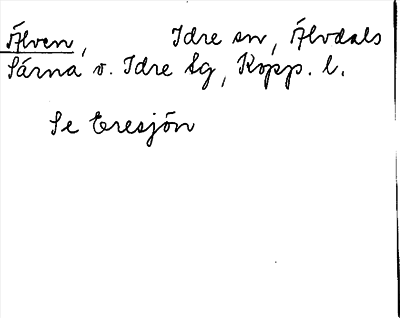 Älven, Idre sn, Älvdals
Särna o. Idre lg, Kopp. l.
Se Eresjön